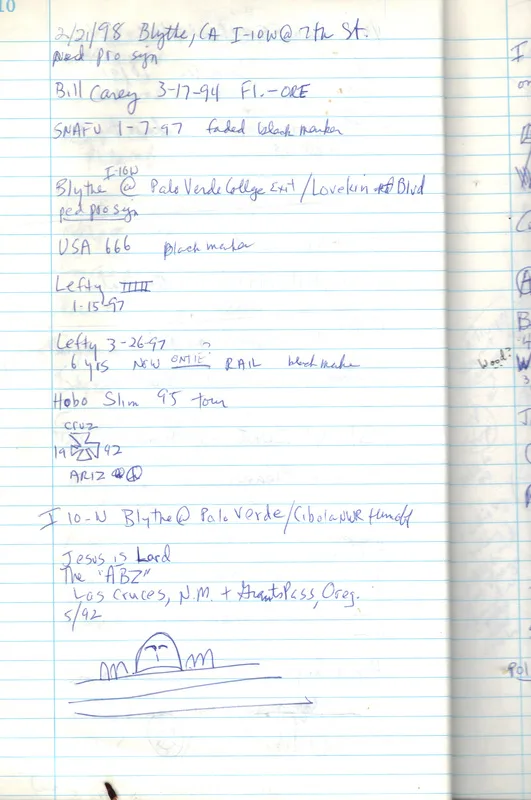 10
2/21/98 Blythe, CA I-10W @ 7th St.
ped pro sign
Bill Carey 3-17-94 Fl.-ORE
SNAFU 1-7-97 faded black marker
I-10W
Blythe @ Palo Verde College Exit / Lovekin Blvd
ped pro sign
USA 666 Black marker
Lefty IIIIII
1-15-97
Lefty 3-26-97 ?
6 yrs NEW ONTIE RAIL black marker
Hobo Slim 95 tour
CRUZ
19 92
ARIZ
I 10-W Blythe @ Palo Verde / Cibola NWR turnoff
Jesus is Lord
The "ABZ"
Las Cruces, N.M. + Grants Pass, Oreg.
5/92
Wood?